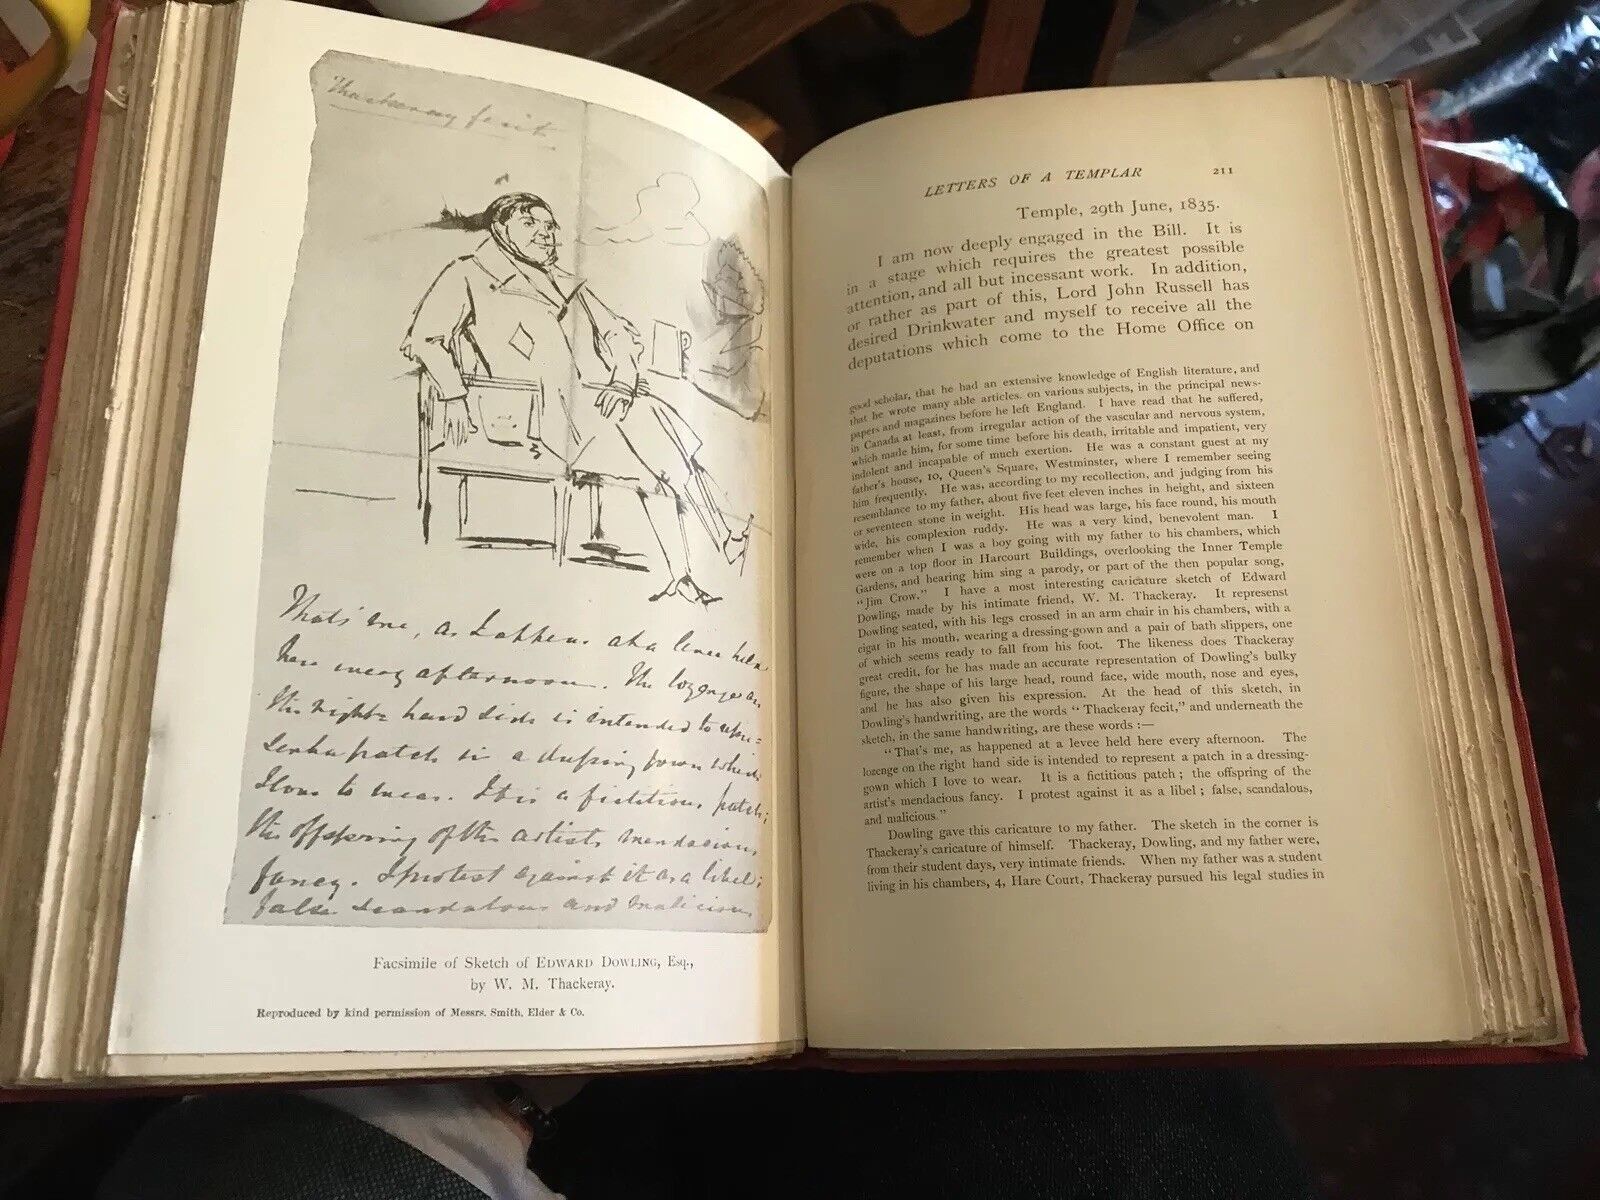 Thackeray fecit
That's me, as I appear at a levee held
here every afternoon. The lozenge on
the right hand side is intended to repre=
sent a patch in a dressing gown which
I love to wear. It is a fictitious patch;
the offspring of the artists mendacious
fancy. I protest against it as a libel;
false scandalous and malicious
Facsimile of Sketch of EDWARD DOWLING, Esq.,
by W. M. Thackeray.
Reproduced by kind permission of Messrs. Smith, Elder & Co.
LETTERS OF A TEMPLAR 211
Temple, 29th June, 1835.
I am now deeply engaged in the Bill. It is
in a stage which requires the greatest possible
attention, and all but incessant work. In addition,
or rather as part of this, Lord John Russell has
desired Drinkwater and myself to receive all the
deputations which come to the Home Office on
good scholar, that he had an extensive knowledge of English literature, and
that he wrote many able articles on various subjects, in the principal news-
papers and magazines before he left England. I have read that he suffered,
in Canada at least, from irregular action of the vascular and nervous system,
which made him, for some time before his death, irritable and impatient, very
indolent and incapable of much exertion. He was a constant guest at my
father's house, 10, Queen's Square, Westminster, where I remember seeing
him frequently. He was, according to my recollection, and judging from his
resemblance to my father, about five feet eleven inches in height, and sixteen
or seventeen stone in weight. His head was large, his face round, his mouth
wide, his complexion ruddy. He was a very kind, benevolent man. I
remember when I was a boy going with my father to his chambers, which
were on a top floor in Harcourt Buildings, overlooking the Inner Temple
Gardens, and hearing him sing a parody, or part of the then popular song,
"Jim Crow." I have a most interesting caricature sketch of Edward
Dowling, made by his intimate friend, W. M. Thackeray. It represenst
Dowling seated, with his legs crossed in an arm chair in his chambers, with a
cigar in his mouth, wearing a dressing-gown and a pair of bath slippers, one
of which seems ready to fall from his foot. The likeness does Thackeray
great credit, for he has made an accurate representation of Dowling's bulky
figure, the shape of his large head, round face, wide mouth, nose and eyes,
and he has also given his expression. At the head of this sketch, in
Dowling's handwriting, are the words "Thackeray fecit," and underneath the
sketch, in the same handwriting, are these words :—
"That's me, as happened at a levee held here every afternoon. The
lozenge on the right hand side is intended to represent a patch in a dressing-
gown which I love to wear. It is a fictitious patch ; the offspring of the
artist's mendacious fancy. I protest against it as a libel ; false, scandalous,
and malicious."
Dowling gave this caricature to my father. The sketch in the corner is
Thackeray's caricature of himself. Thackeray, Dowling, and my father were,
from their student days, very intimate friends. When my father was a student
living in his chambers, 4, Hare Court, Thackeray pursued his legal studies in